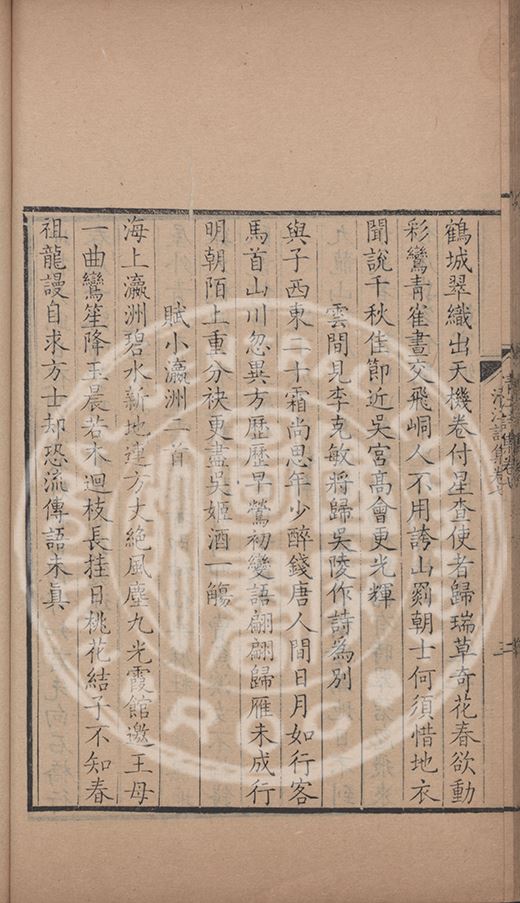 鶴城翠織出天機卷付星查使者歸瑞草奇花春欲動
彩鸞青雀晝交飛峒人不用誇山罽朝士何須惜地衣
聞說千秋佳節近吳宮髙會更光輝
雲間見李克敏將歸吳陵作詩爲別
與子西東二十霜尚思年少醉錢唐人間日月如行客
馬首山川忽異方歷歷早鶯初變語翩翩歸雁未成行
明朝陌上重分袂更盡吳姬酒一觴
賦小瀛洲二首
海上瀛洲碧水新地連方丈絶風塵九光霞館邀王母
一曲鸞笙降玉晨若木迴枝長挂日桃花結子不知春
祖龍謾自求方士却恐流傳語未眞